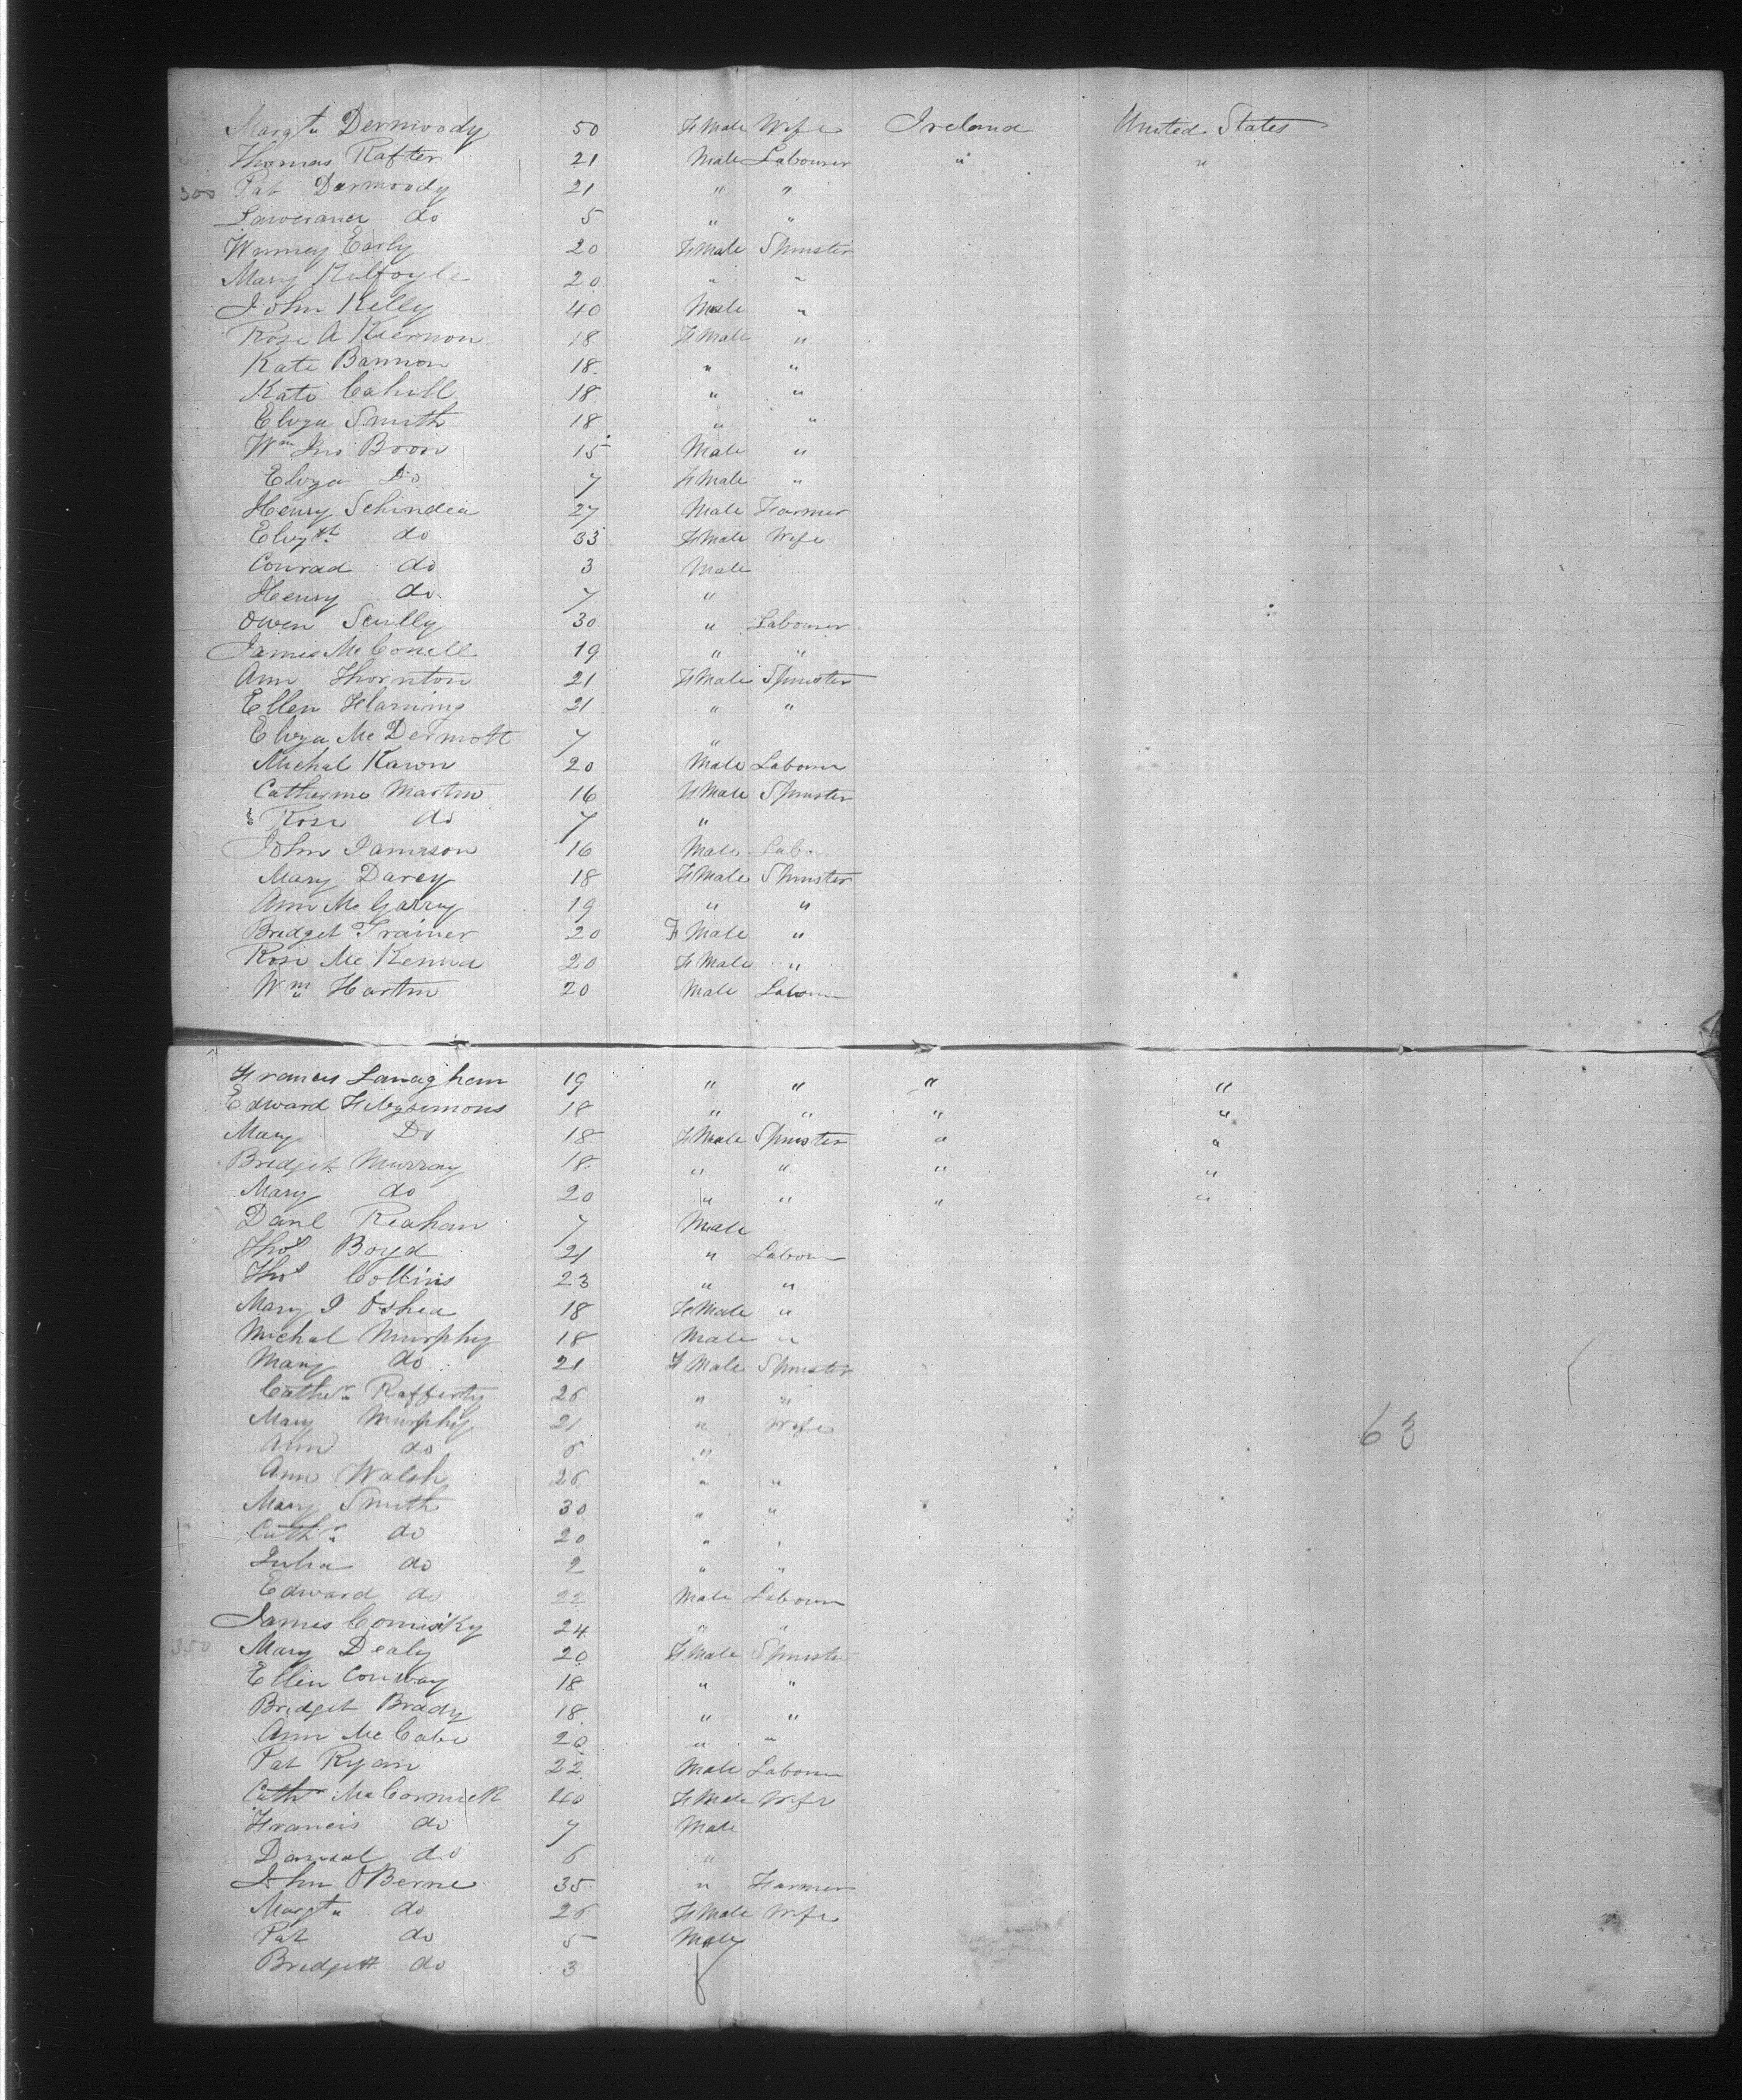 Margt Dermoody 50 Fmale Wife Ireland United States
Thomas Rafter 21 Male Labourer " "
300 Pat Darmoody 21 " "
Lawerance do 5 " "
Winney Early 20 Fmale Spinster
Mary Kilfoyle 20 " "
John Kelly 40 Male "
Rose A Kiernon 18 Fmale "
Kate Bannon 18 " "
Kate Cahill 18 " "
Elvza Smith 18 " "
Wm Jno Boon 15 Male "
Elvza Do 7 Fmale "
Henry Schindea 27 Male Farmer
Elvzth do 33 Fmale Wife
Conrad do 3 Male
Henry do 7 "
Owen Scully 30 " Labourer
James McConell 19 " "
Ann Thornton 21 Fmale Spinster
Ellen Flaning 21 " "
Elvza McDermott 7 "
Michal Kawn 20 Male Labourr
Catherine Martin 16 Fmale Spinster
& Rose do 7 "
John Jamison 16 Male Labo
Mary Darcy 18 Fmale Spinster
Ann McGarry 19 " "
Bridget Trainer 20 Fmale "
Rose McKenna 20 Fmale "
Wm Hartin 20 Male Labourr
Francis Lanagham 19 " " " "
Edward Fitzsimons 18 " " " "
Mary Do 18 Fmale Spinster " "
Bridget Murray 18 " " " "
Mary do 20 " " " "
Danl Reahan 7 Male
Thos Boyd 21 " Labourr
Thos Collins 23 " "
Mary J Oshea 18 Fmale "
Michal Murphy 18 Male "
Mary do 21 Fmale Spinster
Cathe Rafferty 26 " "
Mary Murphy 21 " Wife
63
Ann do 6 "
Ann Walsh 26 " "
Mary Smith 30 " "
Cathr do 20 "
Julia do 2 " "
Edward do 22 Male Labourr
James Comisky 24 " "
350 Mary Dealy 20 Fmale Spinster
Ellen Conway 18 " "
Bridget Brady 18 " "
Ann McCabe 20 " "
Pat Ryan 22 Male Labourr
Cathr McCormick 40 Fmale Wife
Francis do 7 Male
Danieal do 6 "
John OBerne 35 " Farmer
Margt do 26 Fmale Wife
Pat do 5 Male
Bridgett do 3 f